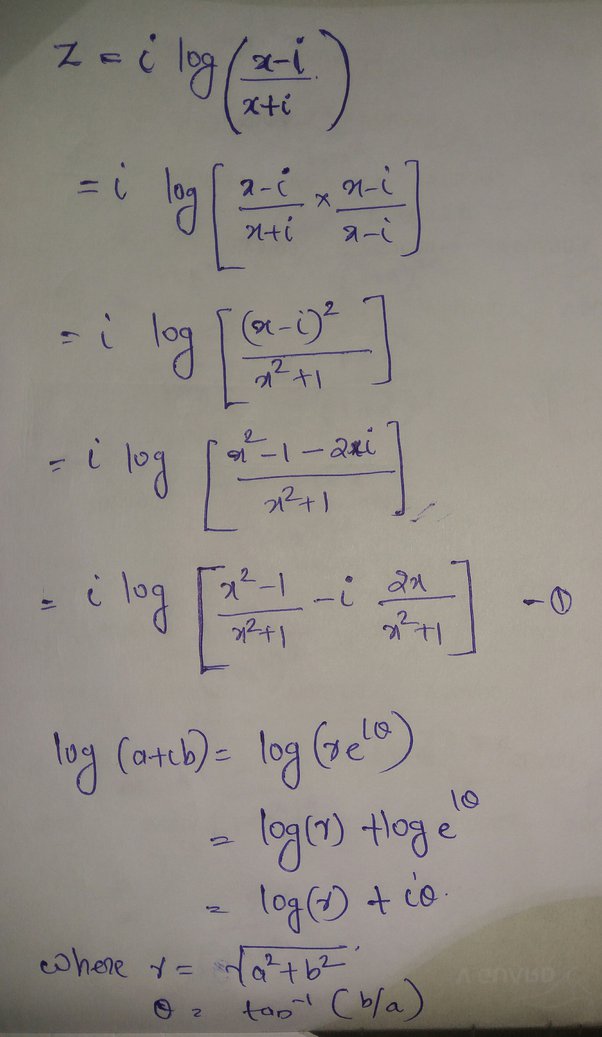 z = i log ( x-i / x+i )
= i log [ x-i / x+i × x-i / x-i ]
= i log [ (x-i)² / x²+1 ]
= i log [ x²-1-2xi / x²+1 ]
= i log [ x²-1 / x²+1 - i 2x / x²+1 ] - ①
log (a+ib) = log (re^iθ)
= log(r) + log e^iθ
= log(r) + iθ.
where r = √a²+b²
θ = tan⁻¹ (b/a)